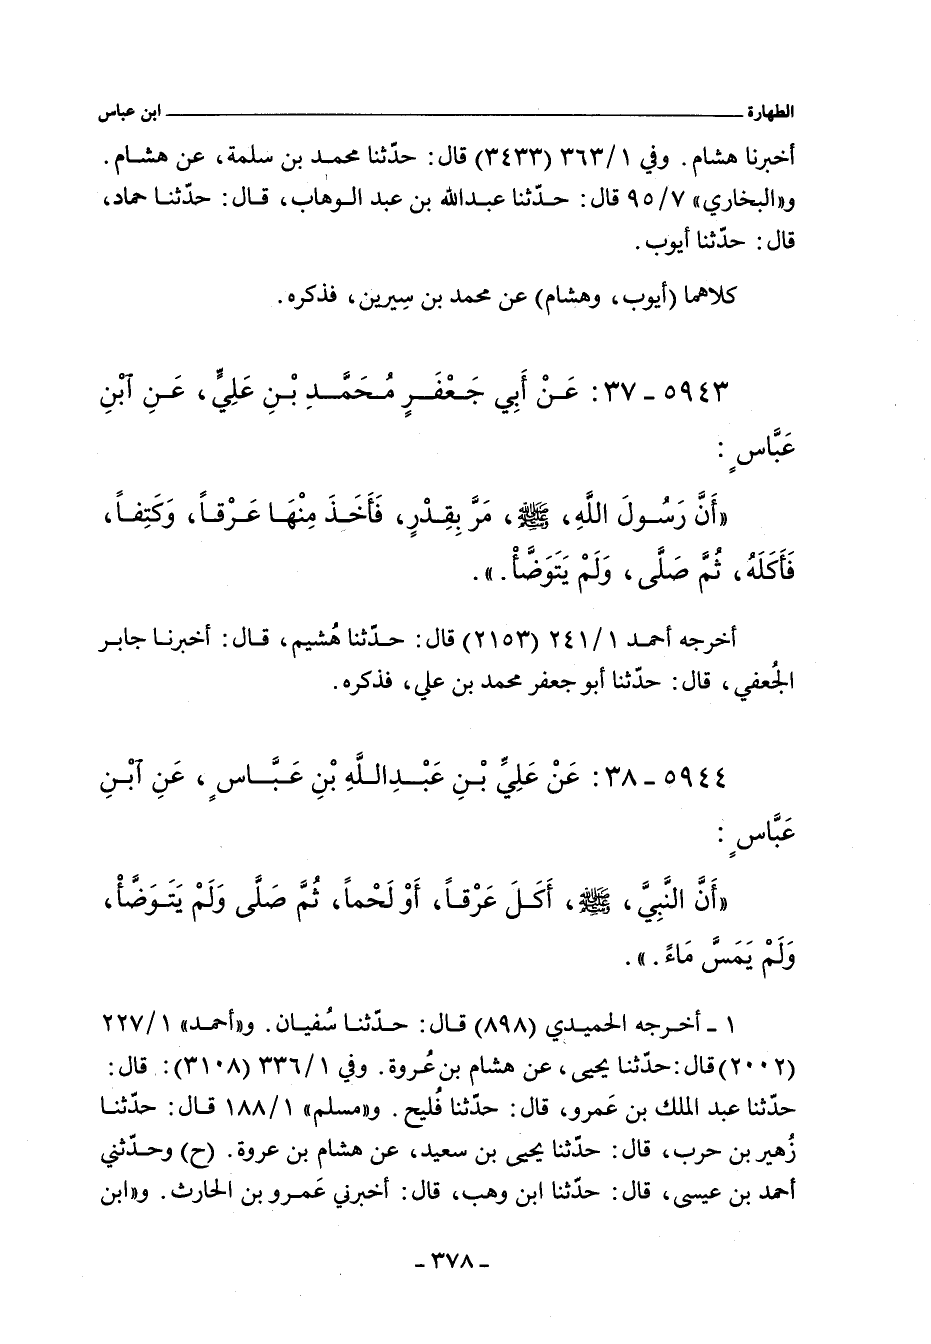 الطهارة ــــــــــــــــــــ ابن عباس
أخبرنا هشام. وفي ١/ ٣٦٣ (٣٤٣٣) قال: حدّثنا محمد بن سلمة، عن هشام.
و«البخاري» ٧/ ٩٥ قال: حدّثنا عبدالله بن عبد الوهاب، قال: حدّثنا حماد،
قال: حدّثنا أيوب.
كلاهما (أيوب، وهشام) عن محمد بن سِيرين، فذكره.
٥٩٤٣ ـ ٣٧: عَنْ أَبِي جَعْفَرٍ مُحَمَّدِ بْنِ عَلِيٍّ، عَنِ آبْنِ
عَبَّاسٍ:
«أَنَّ رَسُولَ اللَّهِ، ﷺ، مَرَّ بِقِدْرٍ، فَأَخَذَ مِنْهَا عَرْقاً، وَكَتِفاً،
فَأَكَلَهُ، ثُمَّ صَلَّى، وَلَمْ يَتَوَضَّأْ.».
أخرجه أحمد ١/ ٢٤١ (٢١٥٣) قال: حدّثنا هُشيم، قال: أخبرنا جابر
الجُعفي، قال: حدّثنا أبو جعفر محمد بن علي، فذكره.
٥٩٤٤ ـ ٣٨: عَنْ عَلِيِّ بْنِ عَبْدِاللَّهِ بْنِ عَبَّاسٍ، عَنِ آبْنِ
عَبَّاسٍ:
«أَنَّ النَّبِيَّ، ﷺ، أَكَلَ عَرْقاً، أَوْ لَحْماً، ثُمَّ صَلَّى وَلَمْ يَتَوَضَّأْ،
وَلَمْ يَمَسَّ مَاءً.».
١ ـ أخرجه الحميدي (٨٩٨) قال: حدّثنا سُفيان. و«أحمد» ١/ ٢٢٧
(٢٠٠٢) قال: حدّثنا يحيى، عن هشام بن عُروة. وفي ١/ ٣٣٦ (٣١٠٨): قال:
حدّثنا عبد الملك بن عَمرو، قال: حدّثنا فُليح. و«مسلم» ١/ ١٨٨ قال: حدّثنا
زُهير بن حرب، قال: حدّثنا يحيى بن سعيد، عن هشام بن عروة. (ح) وحدّثني
أحمد بن عيسى، قال: حدّثنا ابن وهب، قال: أخبرني عَمرو بن الحارث. و«ابن
ـ ٣٧٨ ـ